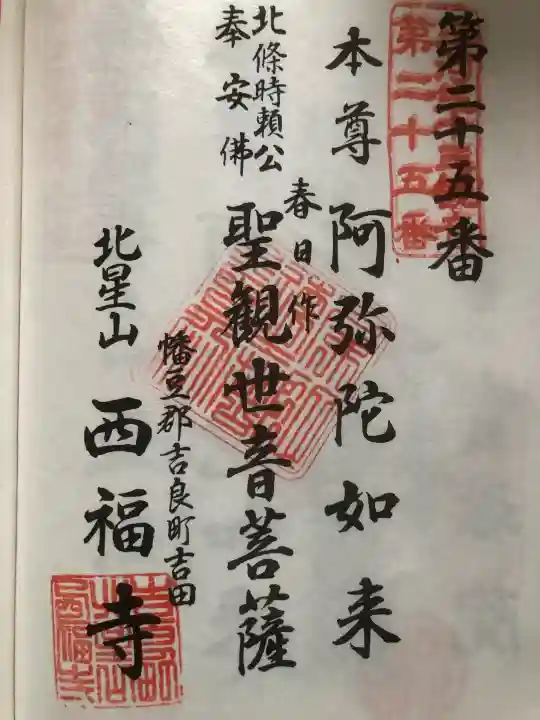 第二十五番
第二十五番
本尊 阿弥陀如来
春日作
聖観世音菩薩
北條時頼公
奉安佛
幡豆郡吉良町吉田
北星山 西福寺